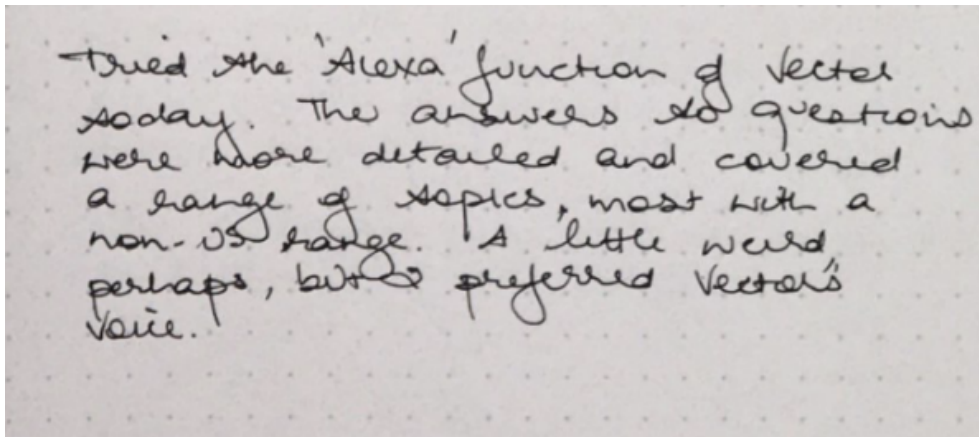 Tried the 'Alexa' function of Vector
today. The answers to questions
were more detailed and covered
a range of topics, most with a
non-US range. A little weird,
perhaps, but I preferred Vector's
voice.